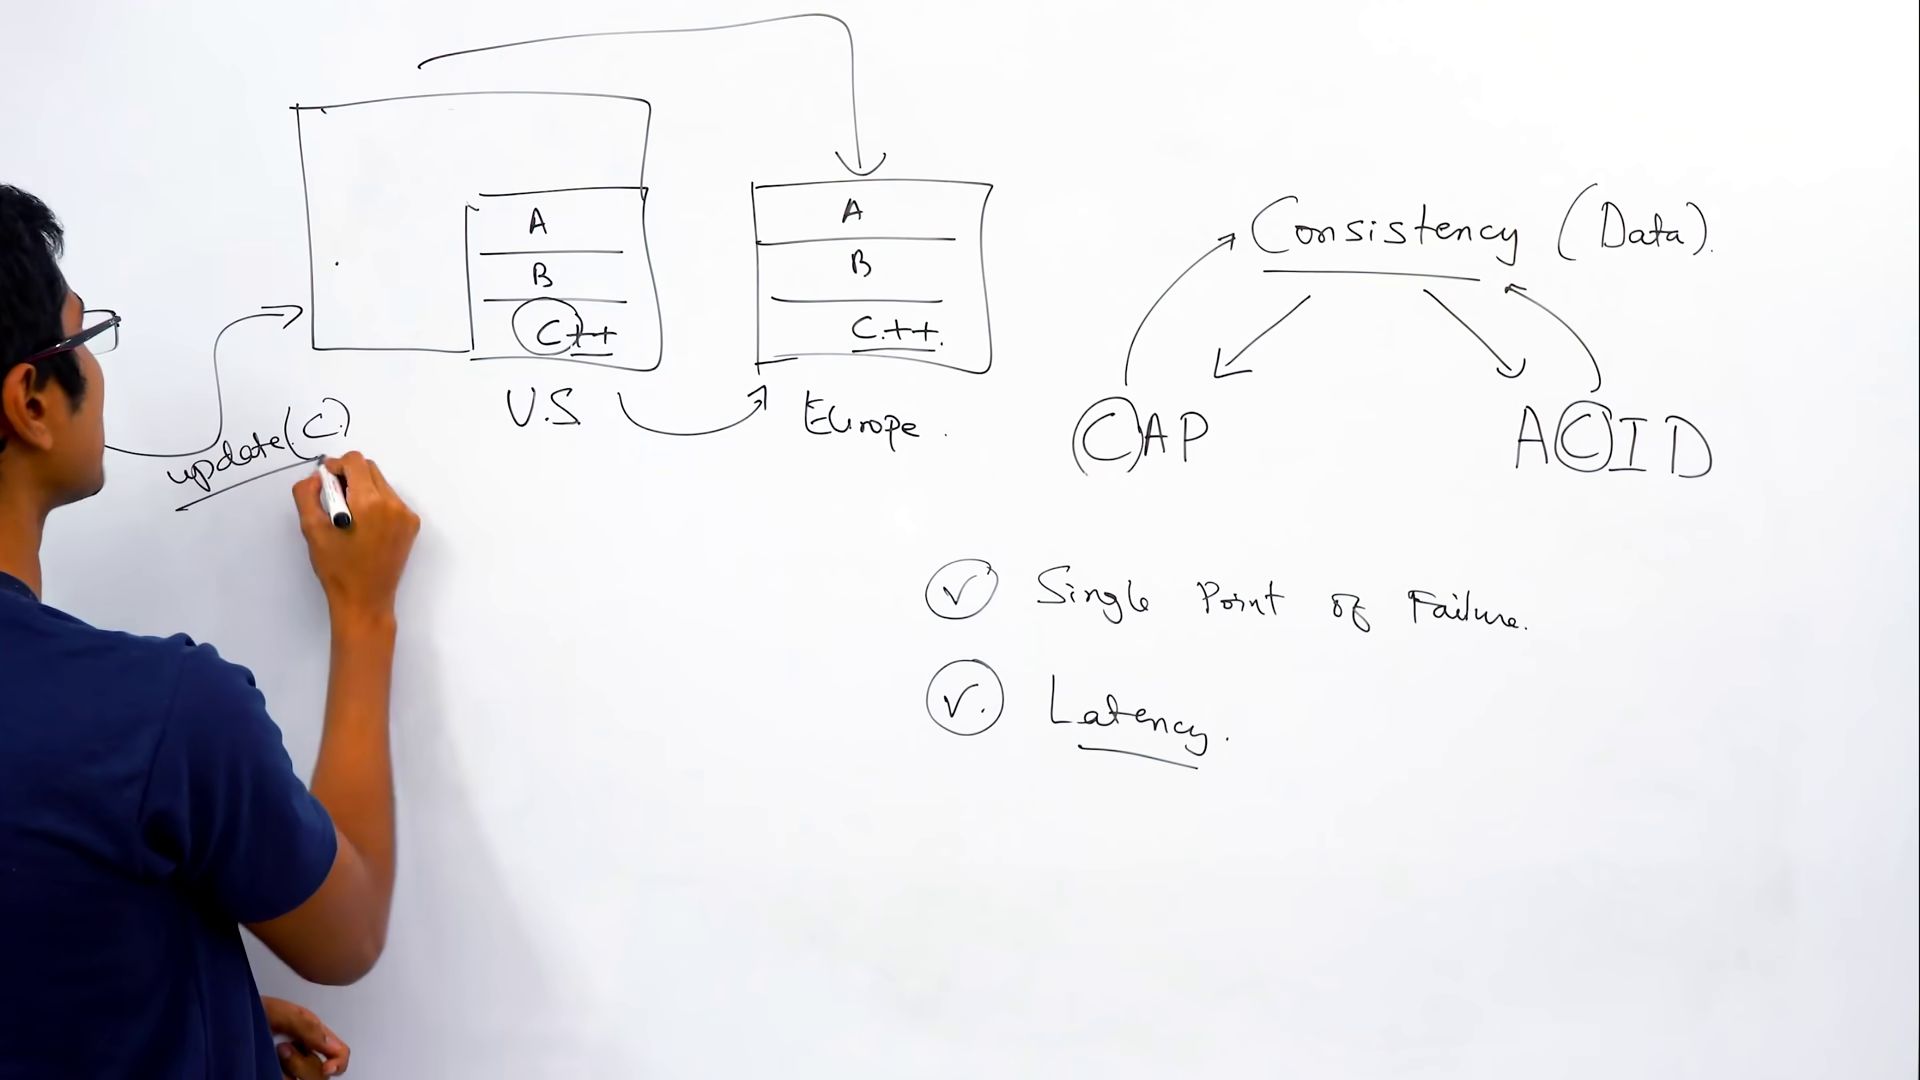 A
B
C++
U.S
update(C)
A
B
C++.
Europe.
Consistency (Data).
CAP
ACID
Single Point of Failure.
Latency.